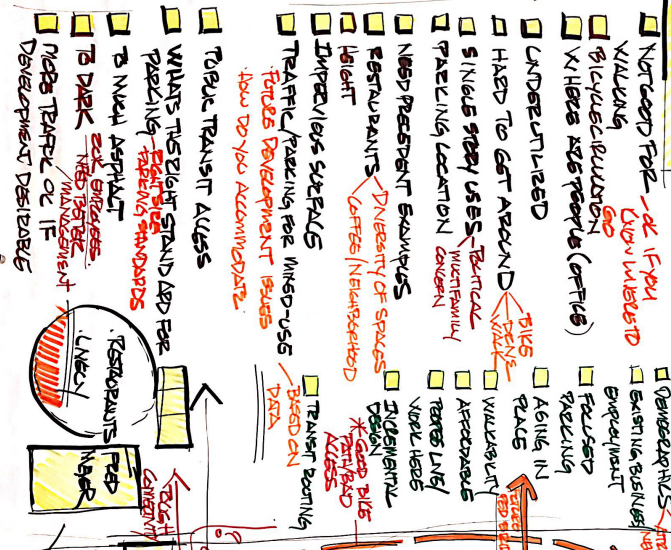 NOT GOOD FOR - OK IF YOU
WALKING KNOW WHERE TO
GO
BICYCLE CIRCULATION
WHERE ARE PEOPLE (OFFICE)
UNDERUTILIZED
HARD TO GET AROUND < BIKE
PENS
WALK
SINGLE STORY USES - POLITICAL
MULTIFAMILY
CONCERN
PARKING LOCATION
NEED PRECEDENT EXAMPLES
RESTAURANTS < DIVERSITY OF SPACES
COFFEE/NEIGHBORHOOD
HEIGHT
IMPERVIOUS SURFACE
TRAFFIC/PARKING FOR MIXED-USE - BASED ON
DATA
FUTURE DEVELOPMENT ISSUES
HOW DO YOU ACCOMMODATE
PUBLIC TRANSIT ACCESS
WHATS THE RIGHT STANDARD FOR
PARKING - RIGHT SIZE
PARKING STANDARDS
TO MUCH ASPHALT
TO DARK - FOR EMPLOYEES
NEED BETTER
MANAGEMENT
MORE TRAFFIC OK IF
DEVELOPMENT DESIRABLE
DEMOGRAPHICS
EXISTING BUSINESS
EMPLOYMENT
FOCUSED
PARKING
AGING IN
PLACE
WALKABILITY
AFFORDABLE
PEOPLE LIVE/
WORK HERE
INCREMENTAL
DESIGN
* GOOD BIKE
PATH/BAD
ACCESS
TRANSIT ROUTING
RESTAURANTS
LIVELY
FRED
MEYER
TOUGH
CONNECTIVITY